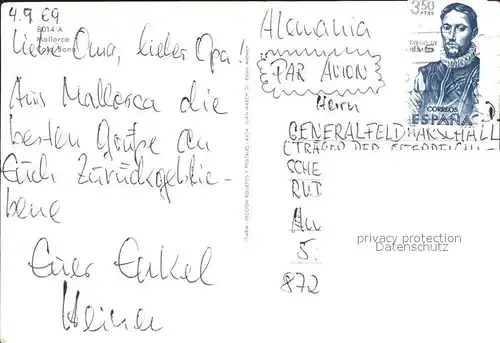 4.9.69
8014 A
Mallorca
Cala Bona
Liebe Oma, lieber Opa!
Aus Mallorca die
besten Grüße an
Euch Zurückgeblie-
bene
Euer Enkel
Heiner
Alemania
PAR AVION
Herrn
GENERALFELDMARSCHALL
(TRÄGER DER
SCHE
RUD
5.
872
3,50
PTAS
CORREOS
ESPAÑA
privacy protection
Datenschutz